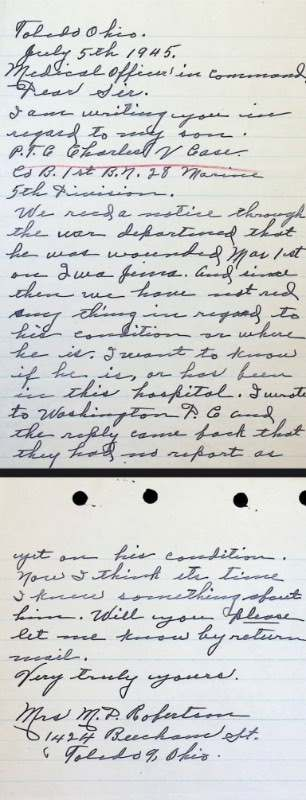 Toledo Ohio.
July 5th 1945.
Medical Officer in command
Dear Sir.
I am writing you in
regard to my son.
P.F.C Charles V Case.
Co B. 1st B.N. 28 Marine
5th Division.
We recd a notice through
the war department that
he was wounded Mar 1st
on Iwa Jema. And since
then we have not recd
any thing in regard to
his condition or where
he is. I want to know
if he is, or has been
in this hospital. I wrote
to Washington D C and
the reply came back that
they had no report as
yet on his condition.
Now I think its time
I knew something about
him. Will you please
let me know by return
mail.
Very truly yours.
Mrs M. P. Robertson
1424 Beecham St.
Toledo 9, Ohio.